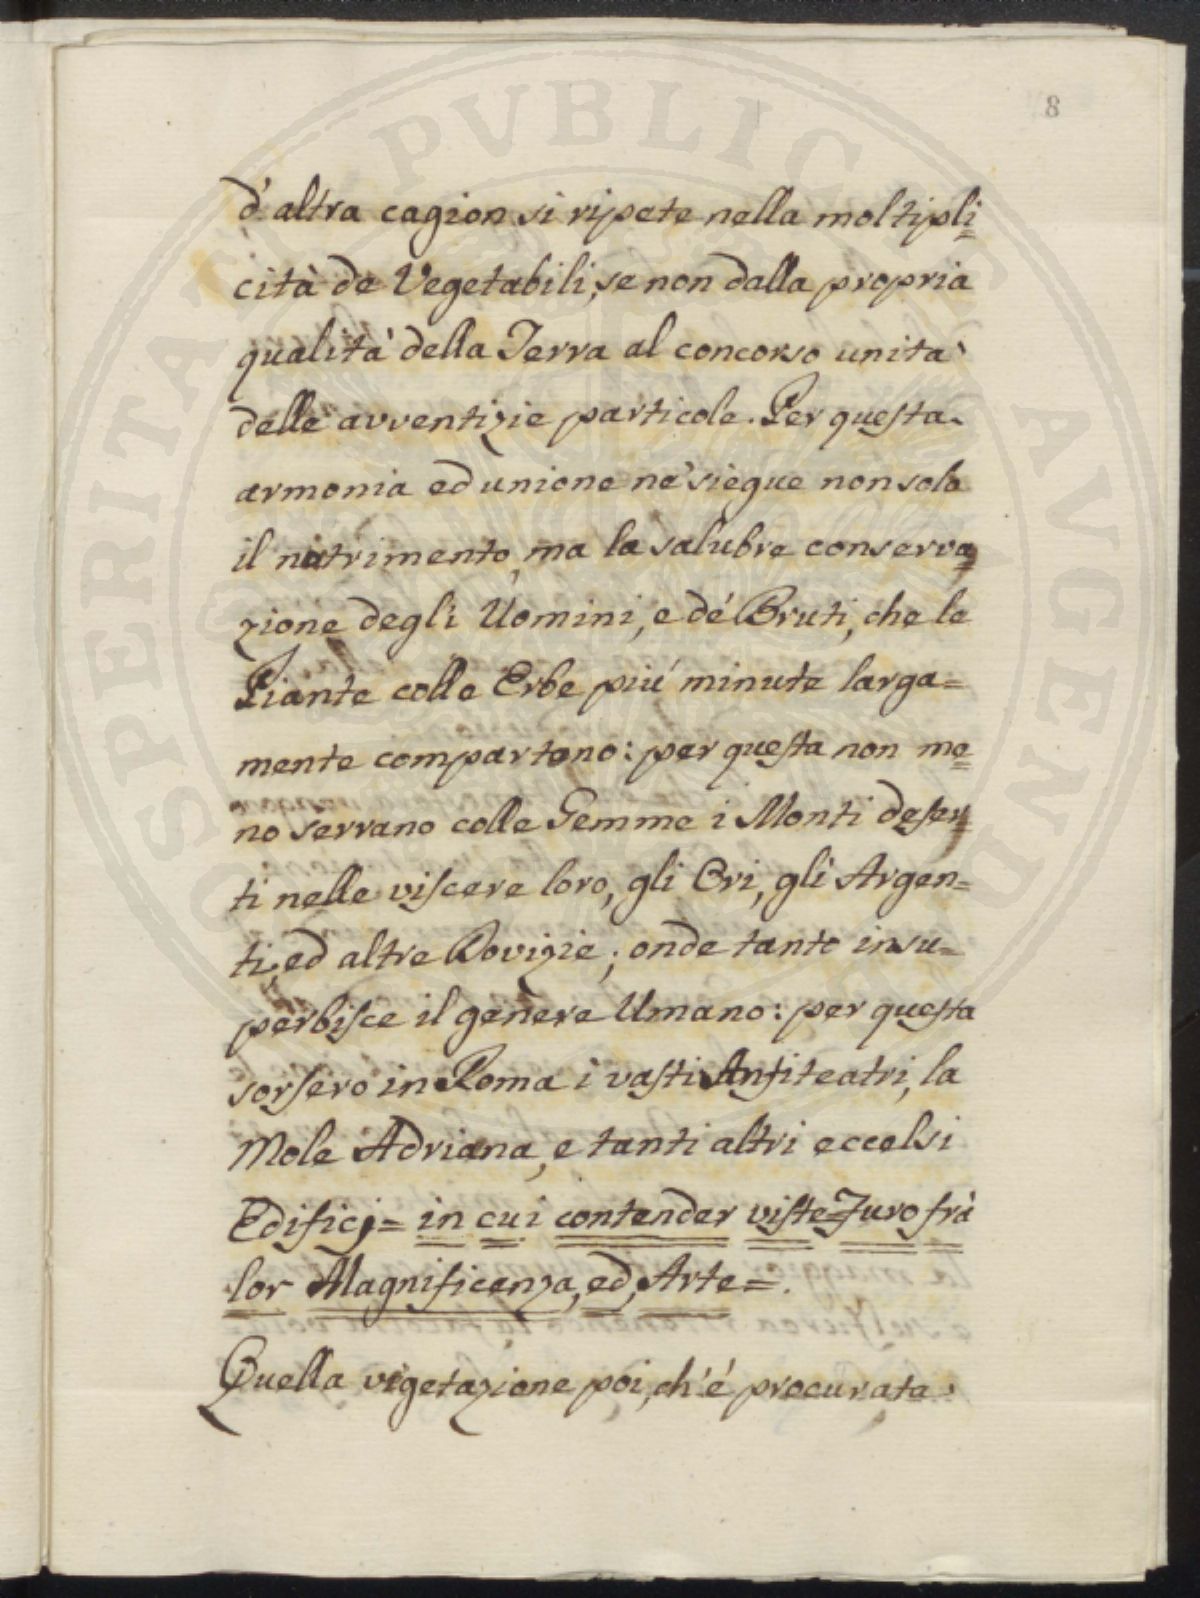 8
d'altra cagion si ripete nella moltipli=
cità de Vegetabili, se non dalla propria
qualità della Terra al concorso unita
delle avventizie particole. Per questa
armonia ed unione ne siegue non solo
il nutrimento, ma la salubre conserva=
zione degli Uomini, e dé Bruti, che le
Piante colle Erbe piú minute larga=
mente compartono: per questa non me=
no serrano colle Gemme i Monti deser=
ti nelle viscere loro, gli Ori, gli Argen=
ti, ed altre Dovizie; onde tanto insu=
perbisce il genere Umano: per questa
sorsero in Roma i vasti Anfiteatri, la
Mole Adriana, e tanti altri eccelsi
Edificj= in cui contender viste furo frà
lor Magnificenza, ed, Arte=.
Quella vegetazione poi, ch'é procurata
PUBLICAE
PROSPERITATI
AUGENDAE